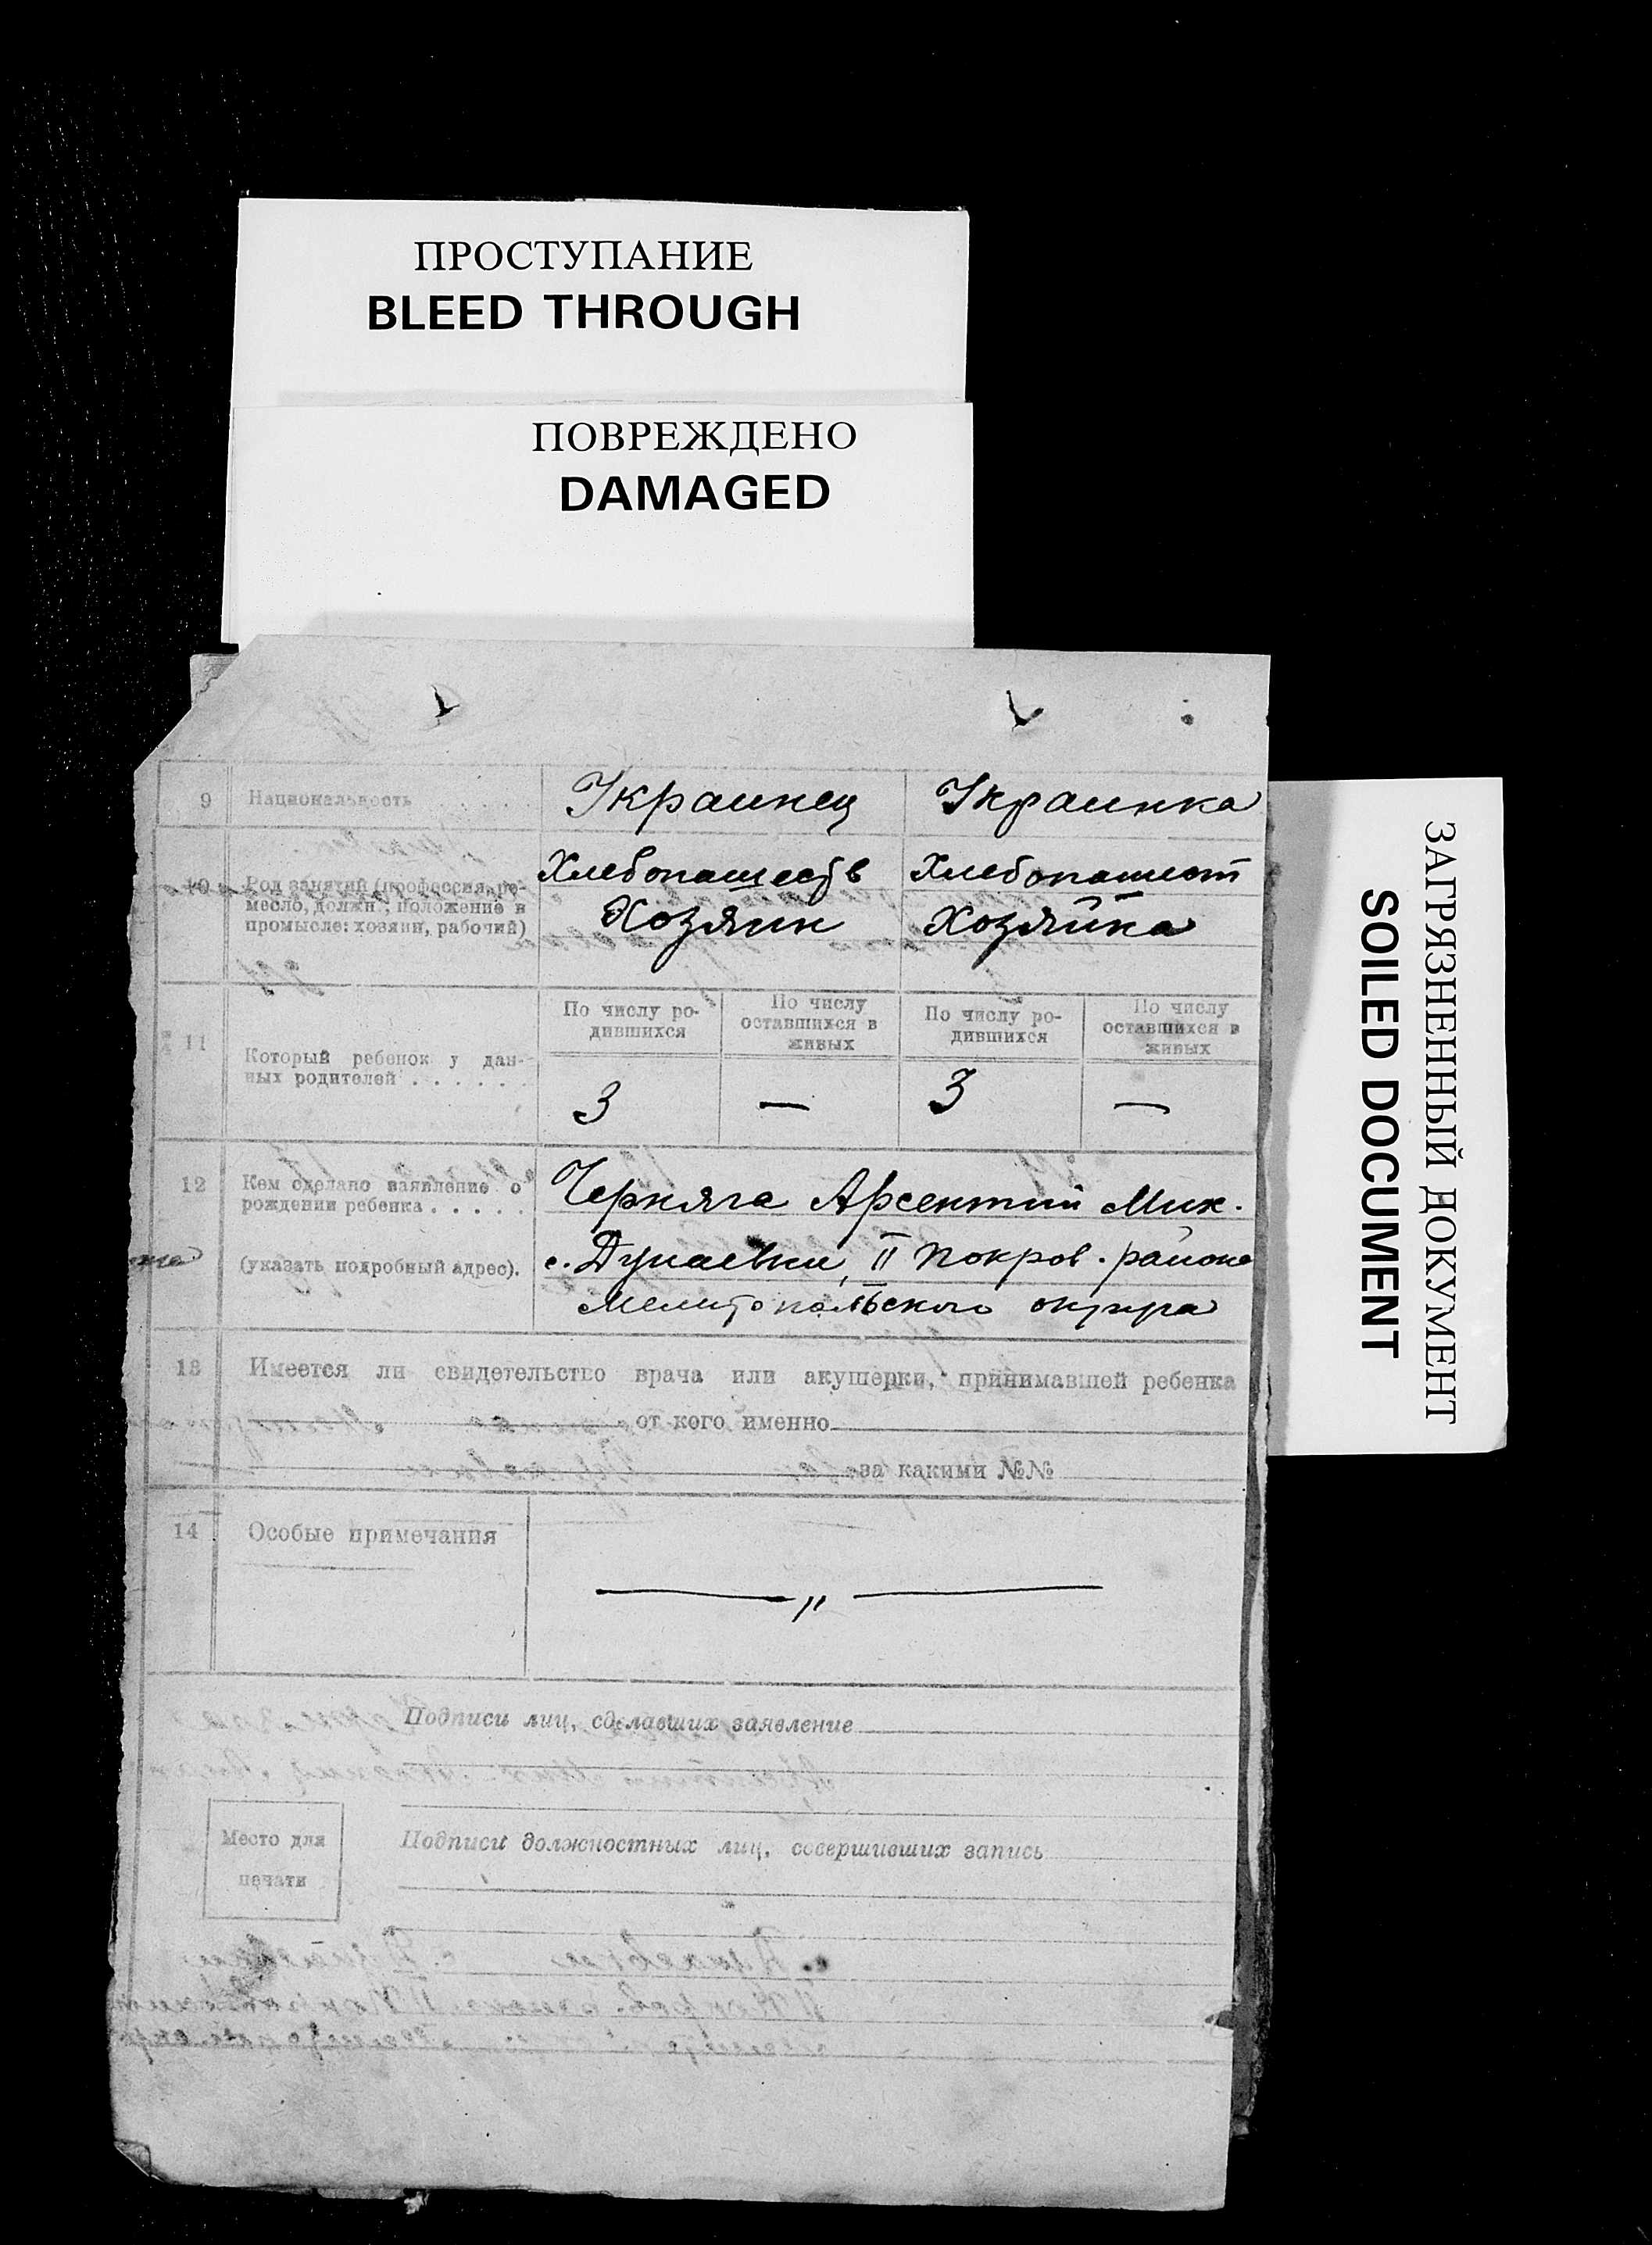 ПРОСТУПАНИЕ
BLEED THROUGH
ПОВРЕЖДЕНО
DAMAGED
ЗАГРЯЗНЕННЫЙ ДОКУМЕНТ
SOILED DOCUMENT
9 Национальность . . . . . Украинец Украинка
10 Род занятий (профессия, ре-
месло, должн., положение в
промысле: хозяин, рабочий)
Хлебопашеств Хлебопашест
Хозяин Хозяйка
11 Который ребенок у дан-
ных родителей . . . . . .
По числу ро-
дившихся
По числу
оставшихся в
живых
По числу ро-
дившихся
По числу
оставшихся в
живых
3 — 3 —
12 Кем сделано заявление о
рождении ребенка . . . . .
(указать подробный адрес).
Черняга Арсентий Мих.
с. Дунаевки, II Покров. района
Мелитопольского округа
13 Имеется ли свидетельство врача или акушерки, принимавшей ребенка
от кого именно
за какими №№
14 Особые примечания
— „ —
Подписи лиц, сделавших заявление
Место для
печати
Подписи должностных лиц, совершивших запись